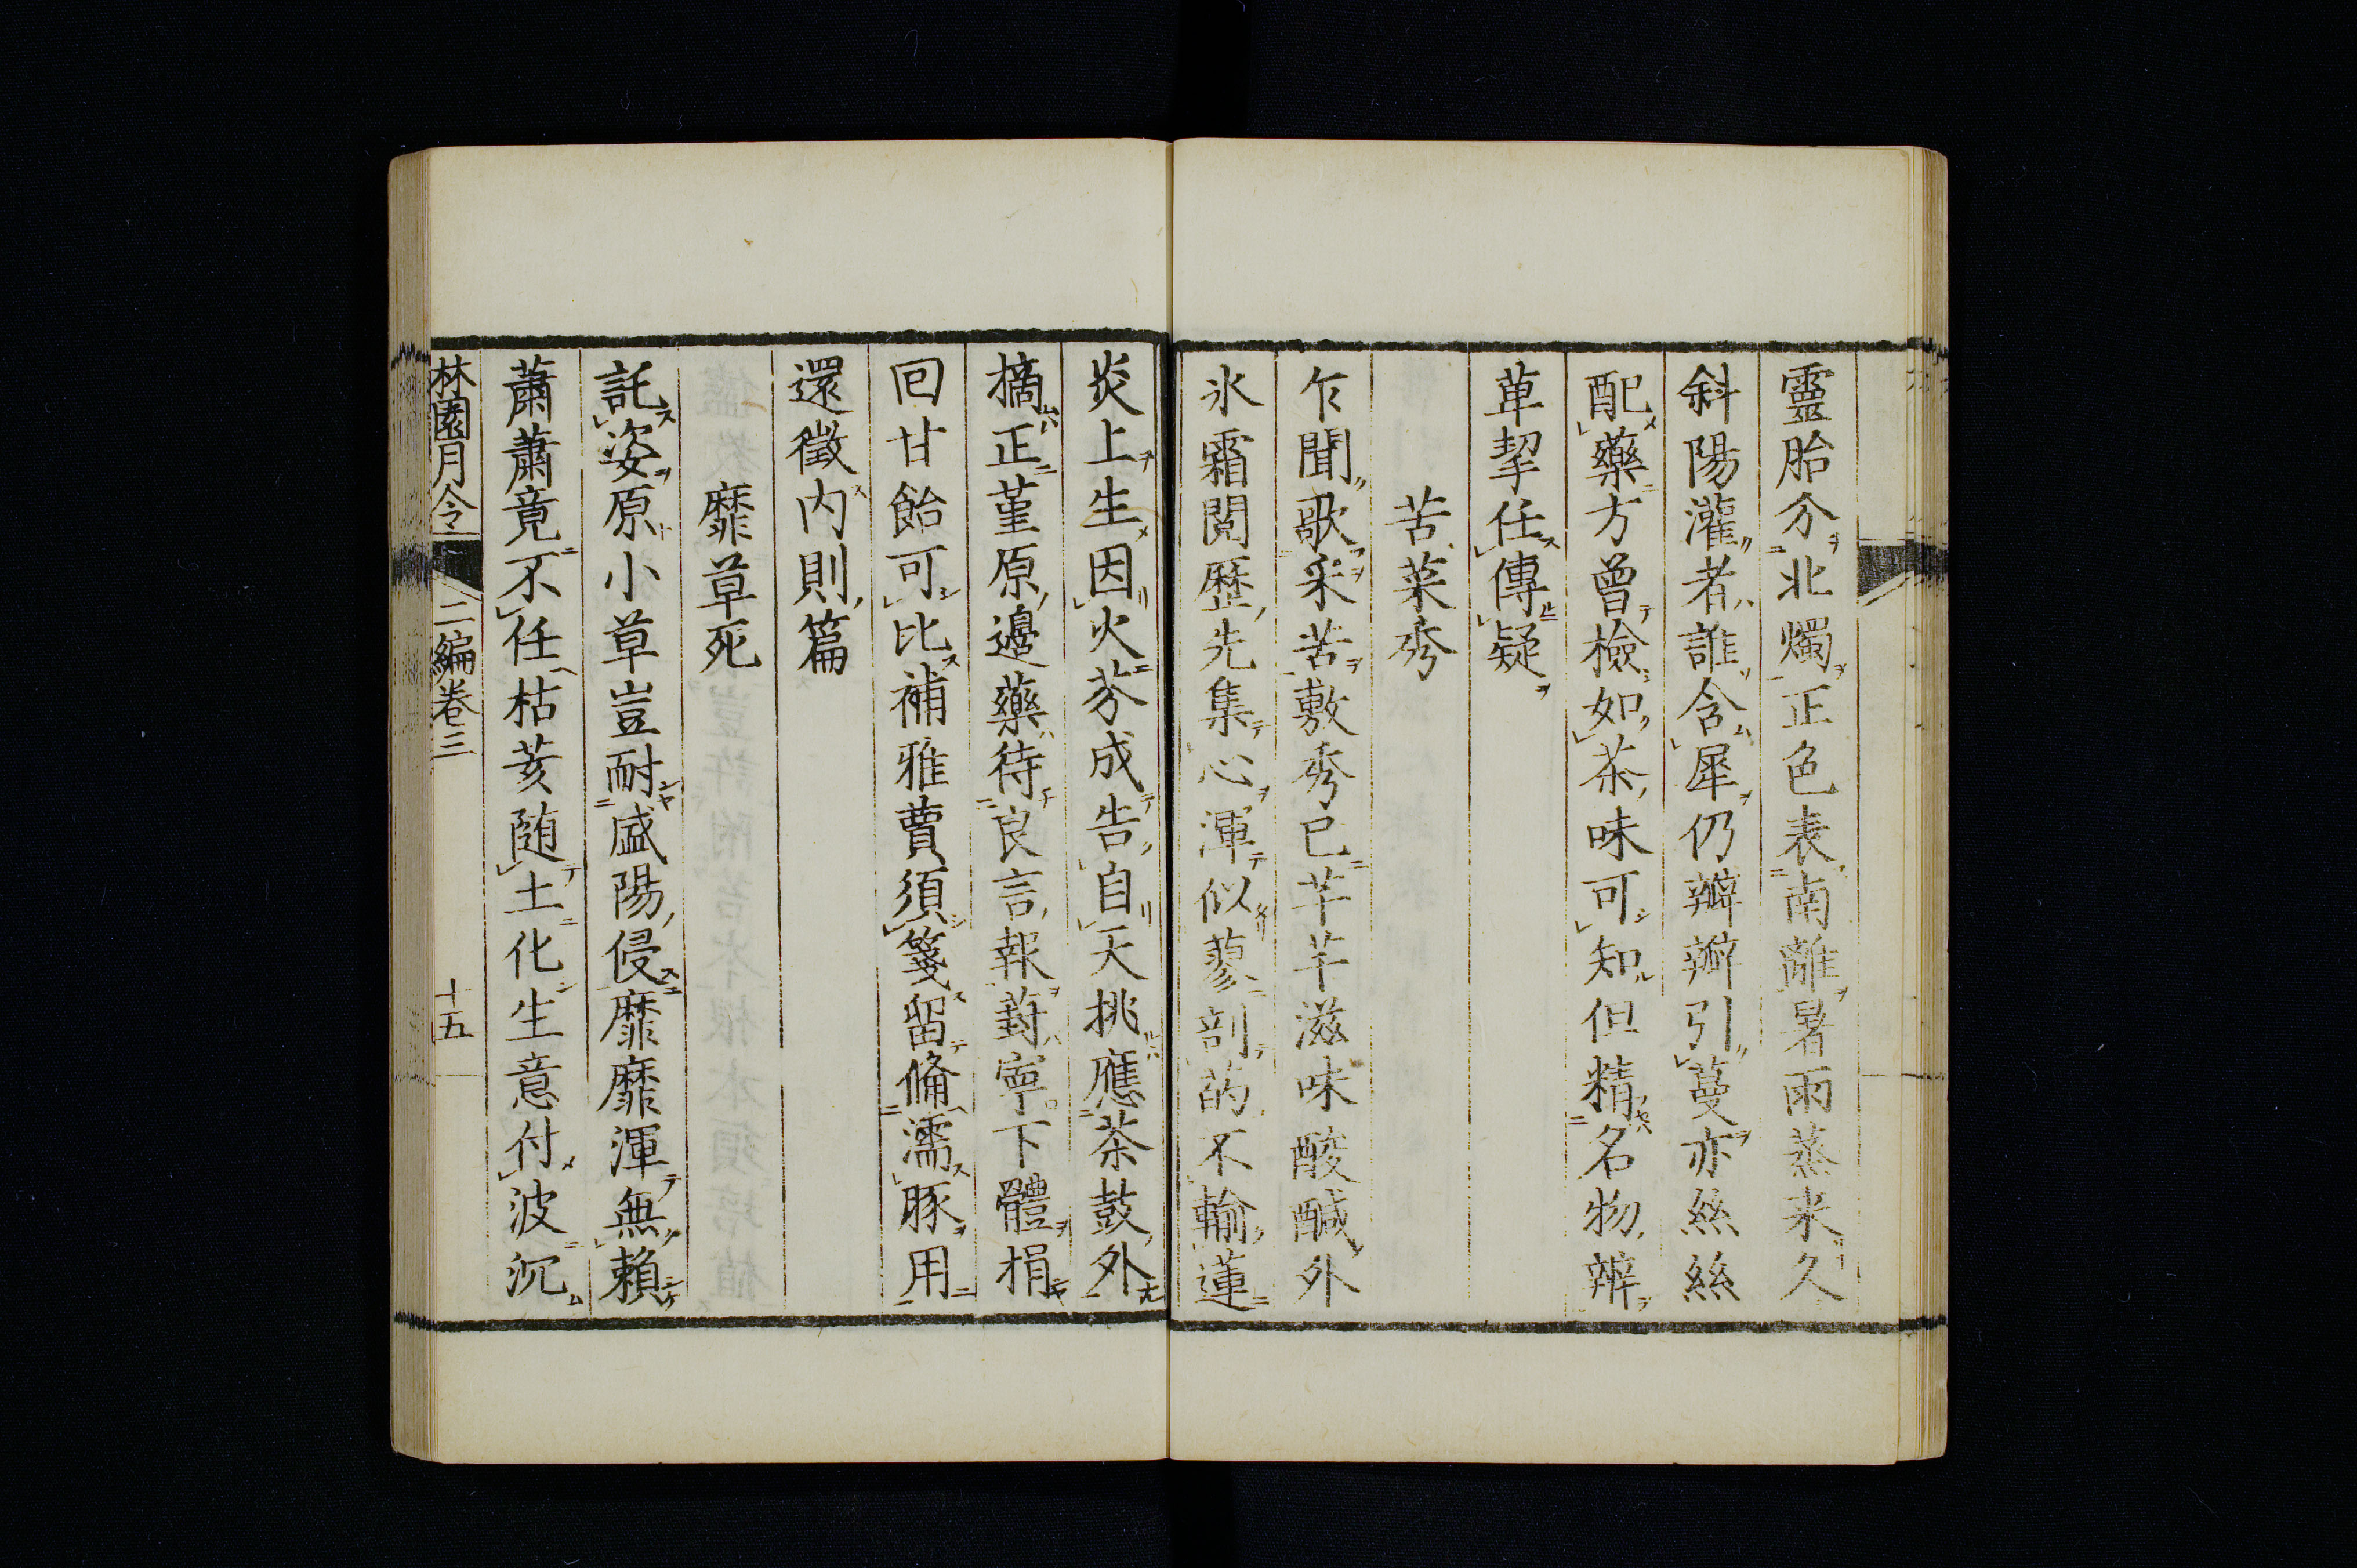 靈胎分北燭正色表南離暑雨蒸来久
斜陽灌者誰含犀仍瓣瓣引蔓亦絲絲
配藥方曾檢如茶味可知但精名物辨
草挈任傳疑
苦菜秀
乍聞歌采苦敷秀已芊芊滋味酸醎外
氷霜閱歷先集心渾似蓼剖菂不輸蓮
炎上生因火芬成告自天挑應茶鼓外
摘正堇原邊藥待良言報葑寧下體捐
回甘飴可比補雅蕒須箋留偹濡豚用
還徵内則篇
靡草死
託姿原小草豈耐盛陽侵靡靡渾無賴
蕭蕭竟不任枯荄随土化生意付波沉
林園月令
二編卷三
十五